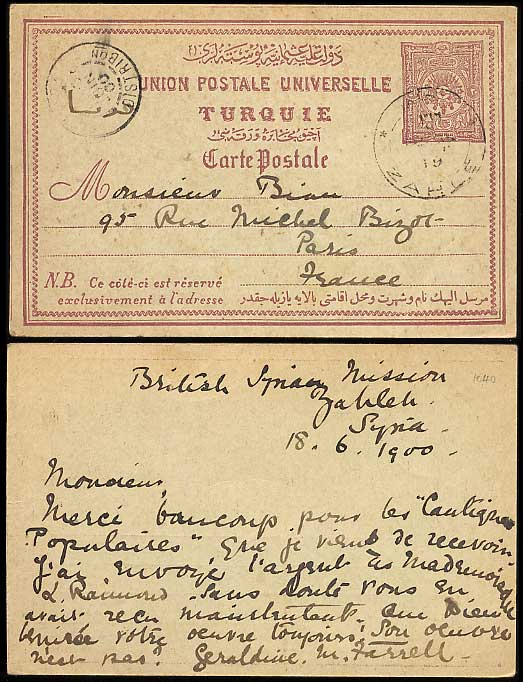 دولت علیه عثمانیه پوسته لری
UNION POSTALE UNIVERSELLE
TURQUIE
Carte Postale
Monsieur Biau
95 Rue Michel Bizot
Paris
France
N.B. Ce côté-ci est réservé
exclusivement à l'adresse
مرسل اليهك نام و شهرت و محل اقامتی بالايه يازيله جقدر
ZAHLÉ
DISTRIBON
1040
British Syrian Mission
Zahleh.
Syria.
18. 6. 1900.
Monsieur,
Merci beaucoup pour les "Cantiques
Populaires" que je viens de recevoir.
J'ai envoyé l'argent à Mademoiselle
L. Raimond. Sans doute vous en
avait reçu maintenant. que Dieu
votre oeuvre toujours. Son oeuvre
n'est pas? Geraldine. M. Farrell.